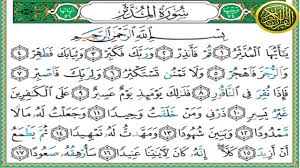 سُورَةُ المُدَّثِّر
بِسْمِ ٱللَّهِ ٱلرَّحْمَٰنِ ٱلرَّحِيمِ
يَٰٓأَيُّهَا ٱلْمُدَّثِّرُ ١ قُمْ فَأَنذِرْ ٢ وَرَبَّكَ فَكَبِّرْ ٣ وَثِيَابَكَ فَطَهِّرْ ٤
وَٱلرُّجْزَ فَٱهْجُرْ ٥ وَلَا تَمْنُن تَسْتَكْثِرُ ٦ وَلِرَبِّكَ فَٱصْبِرْ ٧
فَإِذَا نُقِرَ فِي ٱلنَّاقُورِ ٨ فَذَٰلِكَ يَوْمَئِذٍ يَوْمٌ عَسِيرٌ ٩ عَلَى ٱلْكَٰفِرِينَ
غَيْرُ يَسِيرٍ ١٠ ذَرْنِي وَمَنْ خَلَقْتُ وَحِيدًا ١١ وَجَعَلْتُ لَهُۥ مَالًا
مَّمْدُودًا ١٢ وَبَنِينَ شُهُودًا ١٣ وَمَهَّدتُّ لَهُۥ تَمْهِيدًا ١٤ ثُمَّ يَطْمَعُ
أَنْ أَزِيدَ ١٥ كَلَّآ إِنَّهُۥ كَانَ لِأٓيَٰتِنَا عَنِيدًا ١٦ سَأُرْهِقُهُۥ صَعُودًا ١٧